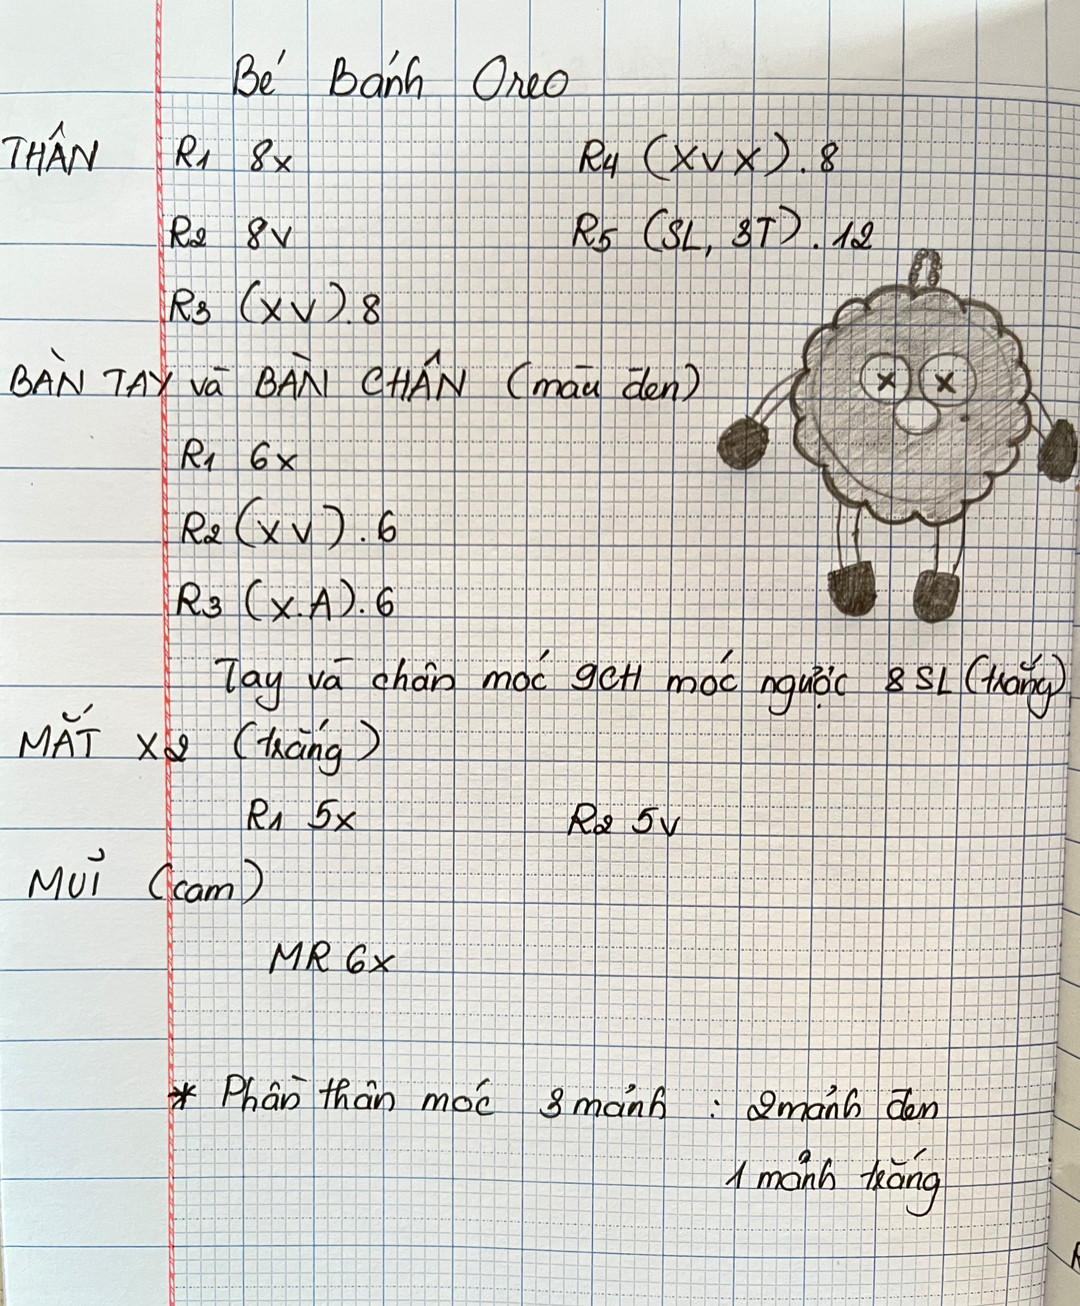 Bé Bánh Oreo
THÂN R1 8x R4 (XVX).8
R2 8v R5 (SL, 3T).12
R3 (XV).8
BÀN TAY và BÀN CHÂN (màu đen)
R1 6x
R2 (XV).6
R3 (X.A).6
Tay và chân móc 9CH móc ngược 8SL (trắng)
MẮT x2 (trắng)
R1 5x R2 5v
MŨI (cam)
MR 6x
* Phần thân móc 3 mảnh : 2 mảnh đen
1 mảnh trắng